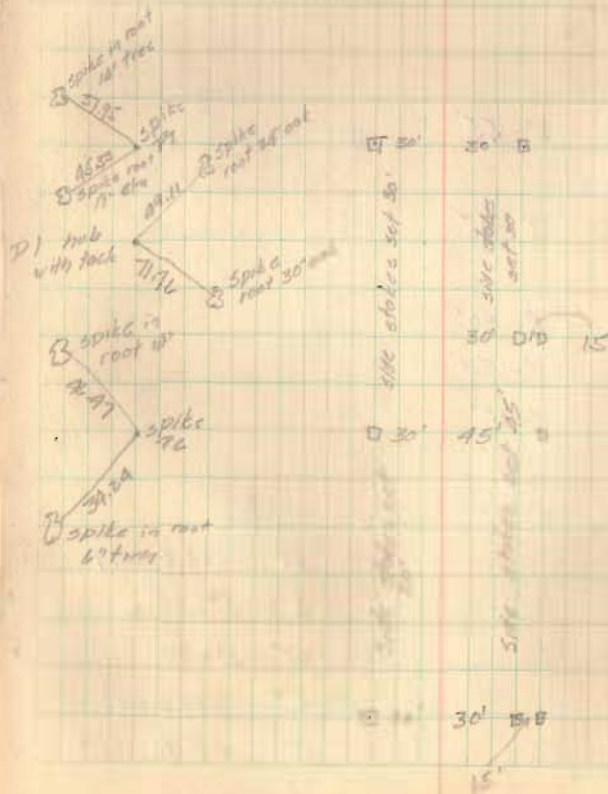 spike in root
14" tree
37.95
spike
46.53
spike root
spike
root 24" oak
49.11
P.I. hub
with tack
71.76
spike
root 30" oak
spike in
root 18"
46.47
spike
34.84
spike in root
6" tree
30'
30'
side stakes set 30'
side stakes
set 30'
30'
15
30'
45'
side stakes set 45'
side stakes set
30'
15'